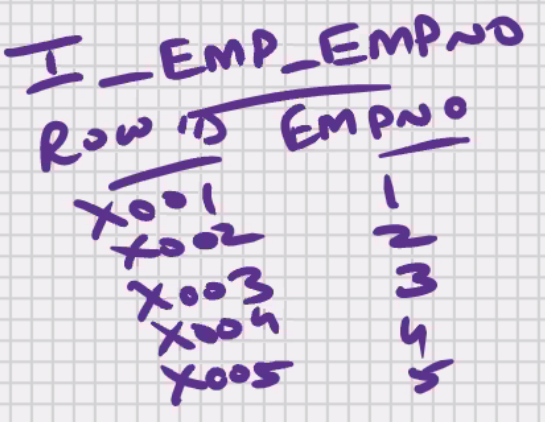 I_EMP_EMPNO
ROWID EMPNO
X001 1
X002 2
X003 3
X004 4
X005 5